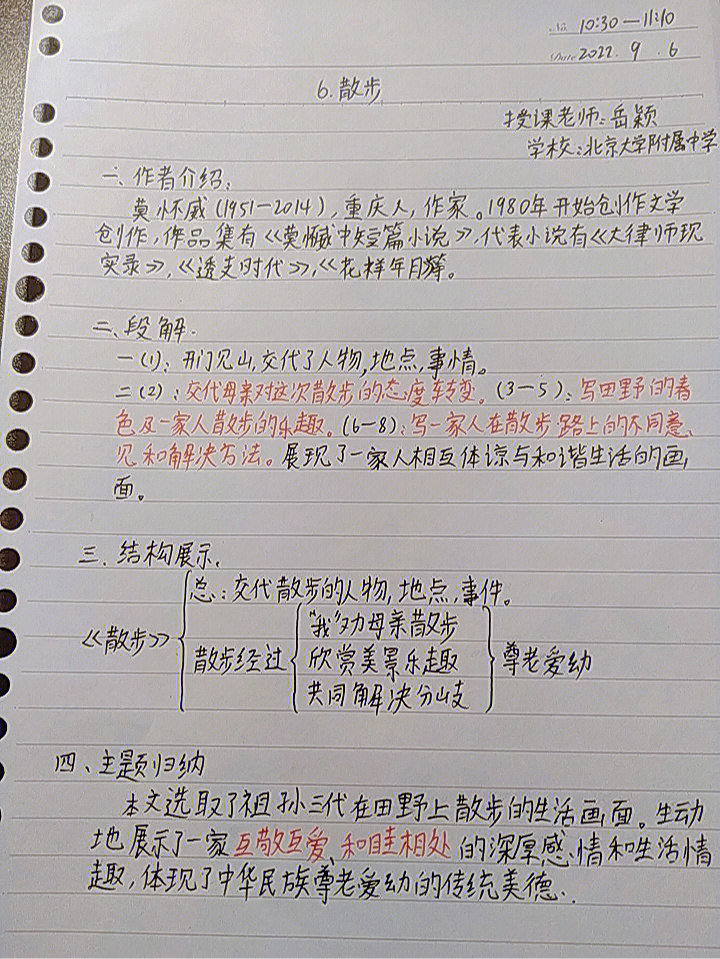 No. 10:30—11:10
Date 2022. 9. 6
6.散步
授课老师:岳颖
学校:北京大学附属中学
一、作者介绍:
莫怀戚(1951—2014),重庆人,作家。1980年开始创作文学
创作,作品集有《莫怀戚中短篇小说》,代表小说有《大律师现
实录》,《透支时代》,《花样年月》。
二、段解.
一(1):开门见山,交代了人物,地点,事情。
二(2):交代母亲对这次散步的态度转变。(3—5):写田野的春
色及一家人散步的乐趣。(6—8):写一家人在散步路上的不同意
见和解决方法。展现了一家人相互体谅与和谐生活的画
面。
三.结构展示.
总:交代散步的人物,地点,事件。
《散步》
散步经过
"我"劝母亲散步
欣赏美景乐趣
共同解决分岐
尊老爱幼
四、主题归纳
本文选取了祖孙三代在田野上散步的生活画面。生动
地展示了一家互敬互爱、和睦相处的深厚感情和生活情
趣,体现了中华民族尊老爱幼的传统美德.